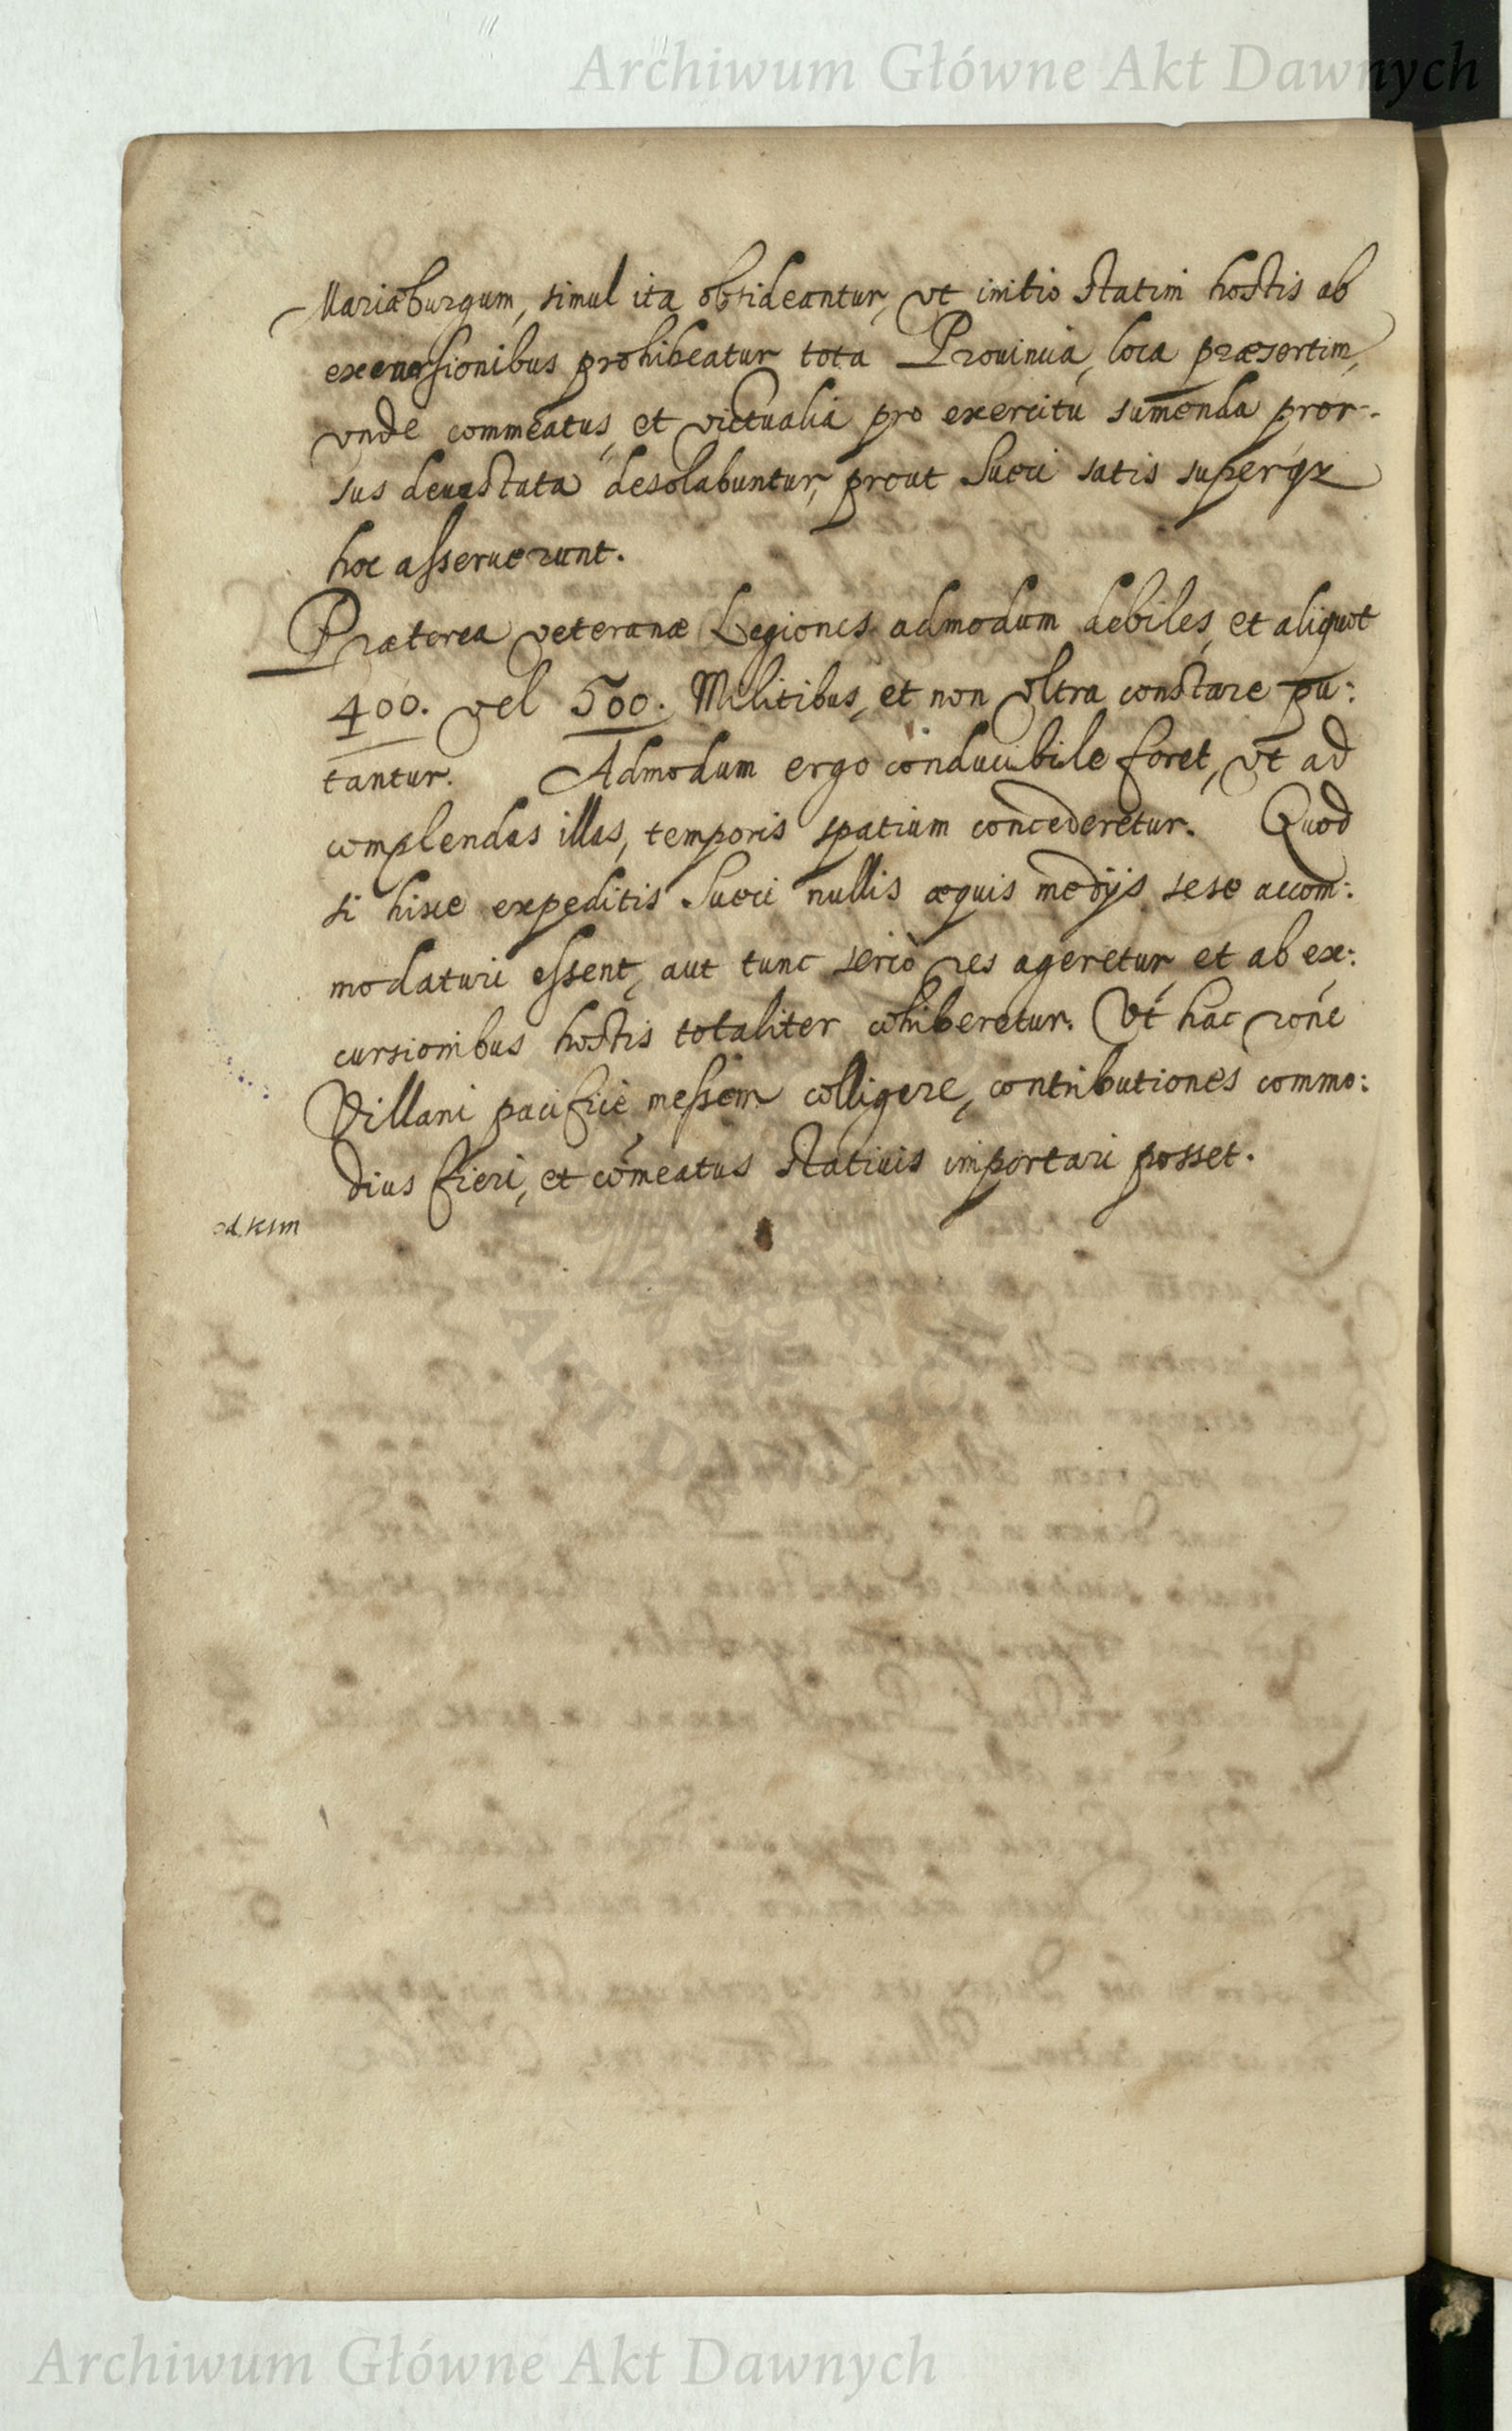 Archiwum Główne Akt Dawnych
Mariæburgum, simul ita obsideantur, vt initio statim hostis ab
excursionibus prohibeatur tota Prouincia, loca præsertim,
vnde commeatus, et victualia pro exercitu sumenda pror-
sus deuastata desolabuntur, prout Sueci satis superq3
hoc asseruerunt.
Præterea veteranæ Legiones admodum debiles, et aliquot
400. vel 500. Militibus, et non vltra constare pu:
tantur. Admodum ergo conducibile foret, vt ad
complendas illas, temporis spatium concederetur. Quod
si hisce expeditis Sueci nullis æquis medijs sese accom:
modaturi essent, aut tunc seriò res ageretur, et ab ex:
cursionibus hostis totaliter cohiberetur. Vt hac rone
Villani pacificè messem colligere, contributiones commo:
dius fieri, et comeatus statiuis importari posset.
AKT DAWNYCH
Archiwum Główne Akt Dawnych